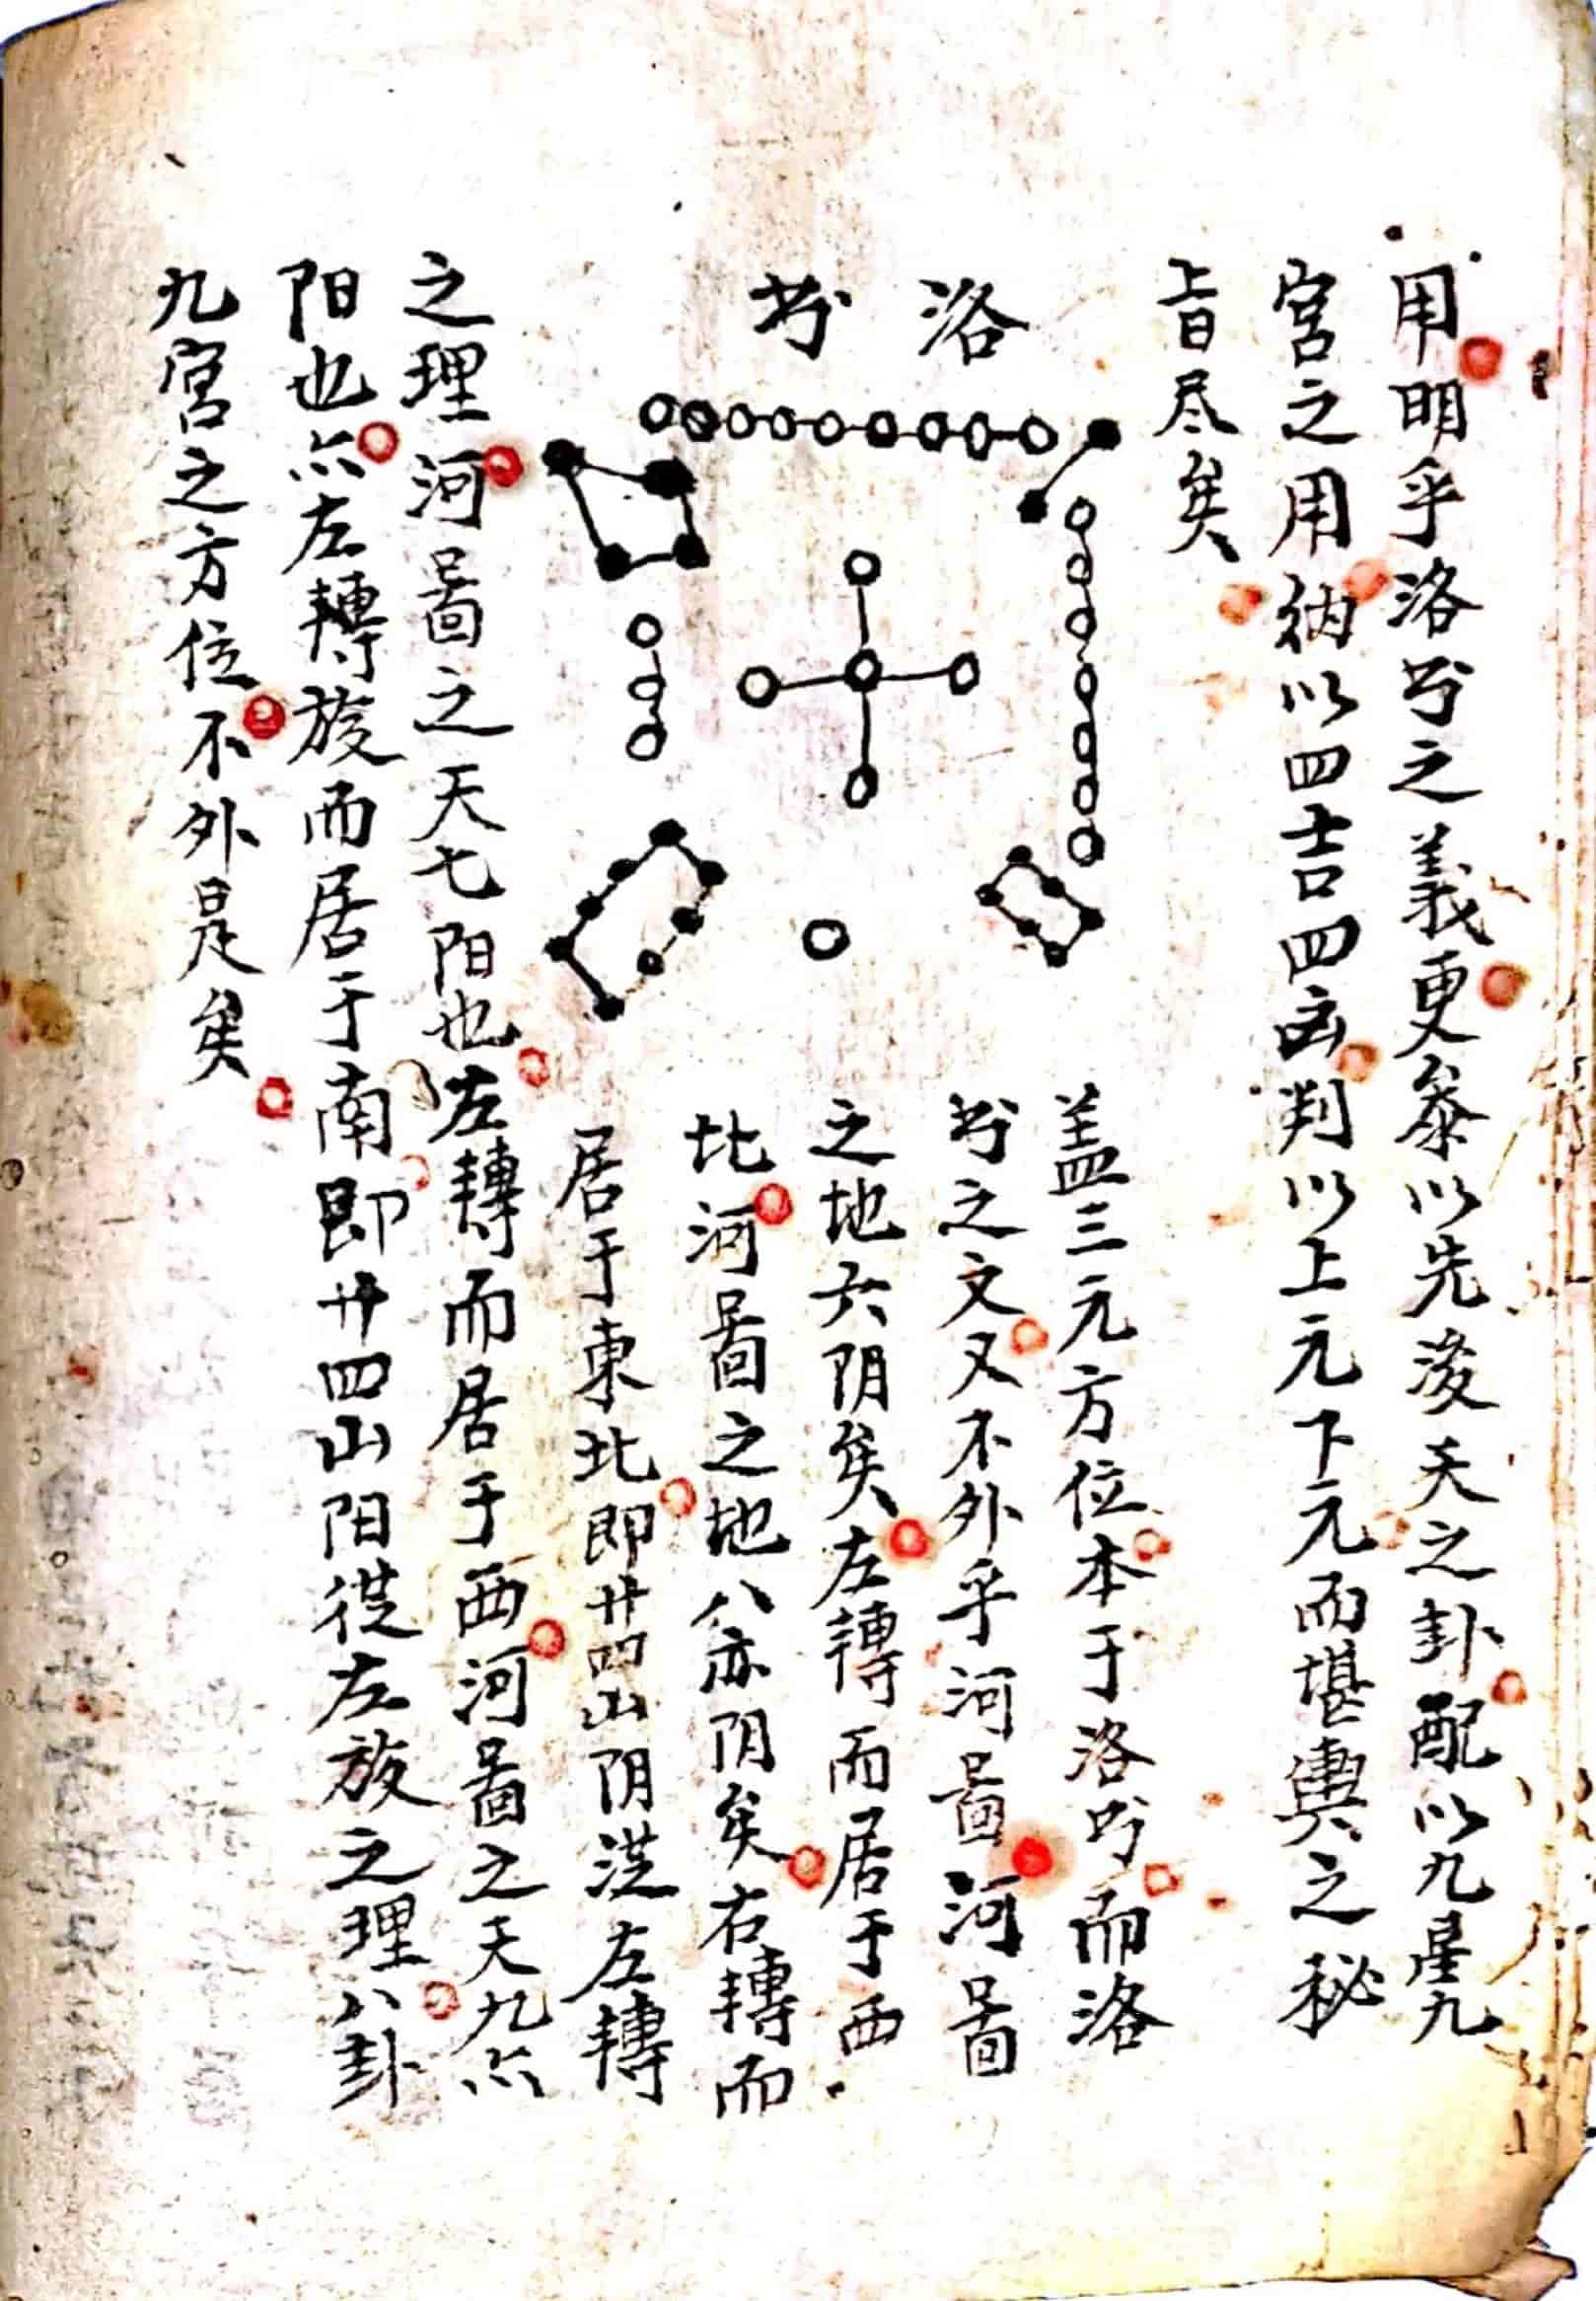 用明乎洛书之義更参以先後天之卦配以九星九
宮之用納以四吉四凶判以上元下元而堪輿之秘
旨尽矣
洛书
盖三元方位本于洛书而洛
书之文又不外乎河啚河啚
之地六阴矣左轉而居于西
北河啚之地八亦阴矣右轉而
居于東北即廿四山阴從左轉
之理河啚之天七阳也左轉而居于西河啚之天九亦
阳也亦左轉旋而居于南即廿四山阳從左旋之理八卦
九宮之方位不外是矣